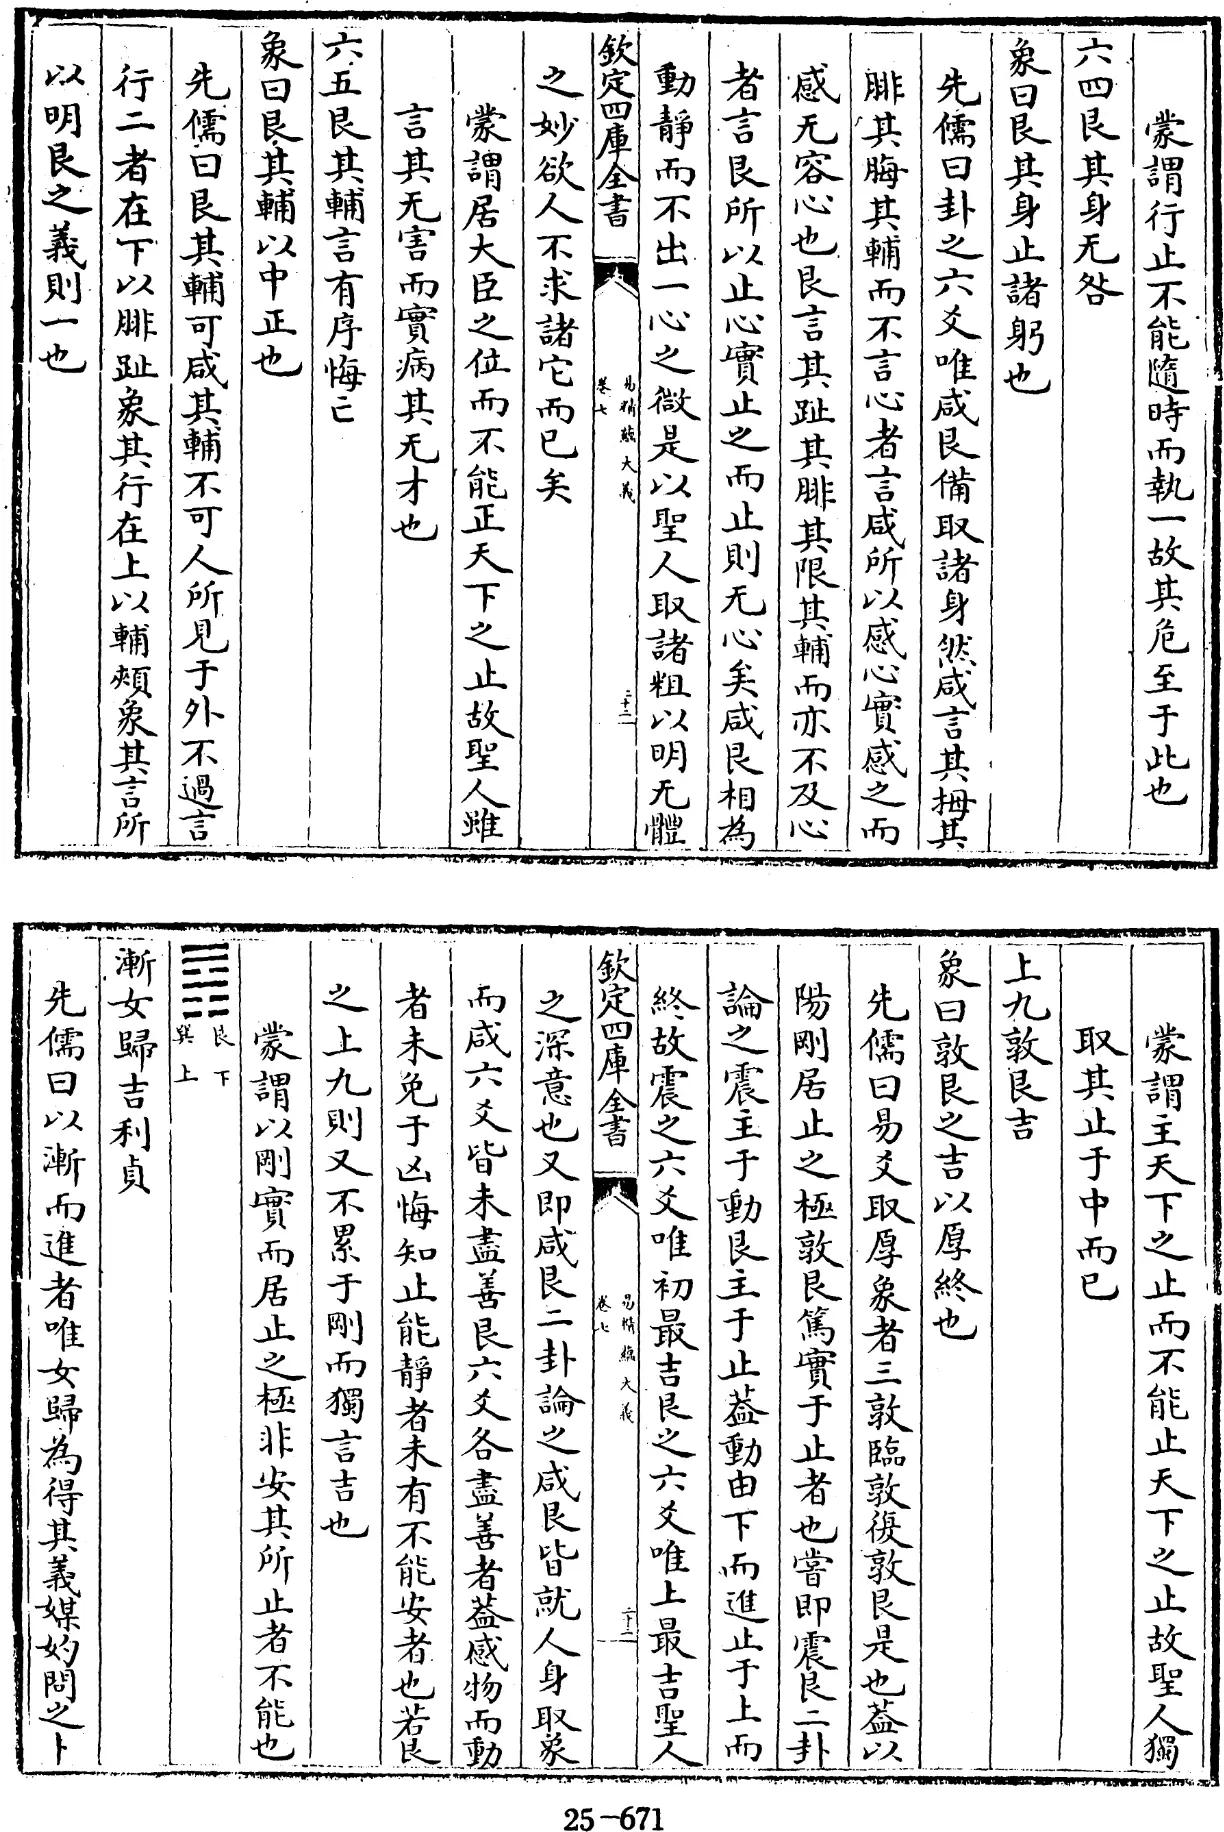 蒙謂行止不能隨時而執一故其危至于此也
六四艮其身无咎
象曰艮其身止諸躬也
先儒曰卦之六爻唯咸艮備取諸身然咸言其拇其
腓其脢其輔而不言心者言咸所以感心實感之而
感无容心也艮言其趾其腓其限其輔而亦不及心
者言艮所以止心實止之而止則无心矣咸艮相為
動靜而不出一心之微是以聖人取諸粗以明无體
欽定四庫全書
易精蘊大義
卷七
二十二
之妙欲人不求諸它而已矣
蒙謂居大臣之位而不能正天下之止故聖人雖
言其无害而實病其无才也
六五艮其輔言有序悔亡
象曰艮其輔以中正也
先儒曰艮其輔可咸其輔不可人所見于外不過言
行二者在下以腓趾象其行在上以輔頰象其言所
以明艮之義則一也
蒙謂主天下之止而不能止天下之止故聖人獨
取其止于中而已
上九敦艮吉
象曰敦艮之吉以厚終也
先儒曰易爻取厚象者三敦臨敦復敦艮是也葢以
陽剛居止之極敦艮篤實于止者也嘗即震艮二卦
論之震主于動艮主于止葢動由下而進止于上而
終故震之六爻唯初最吉艮之六爻唯上最吉聖人
欽定四庫全書
易精蘊大義
卷七
二十二
之深意也又即咸艮二卦論之咸艮皆就人身取象
而咸六爻皆未盡善艮六爻各盡善者葢感物而動
者未免于凶悔知止能靜者未有不能安者也若艮
之上九則又不累于剛而獨言吉也
蒙謂以剛實而居止之極非安其所止者不能也
艮下
巽上
漸女歸吉利貞
先儒曰以漸而進者唯女歸為得其義媒妁問之卜
25-671